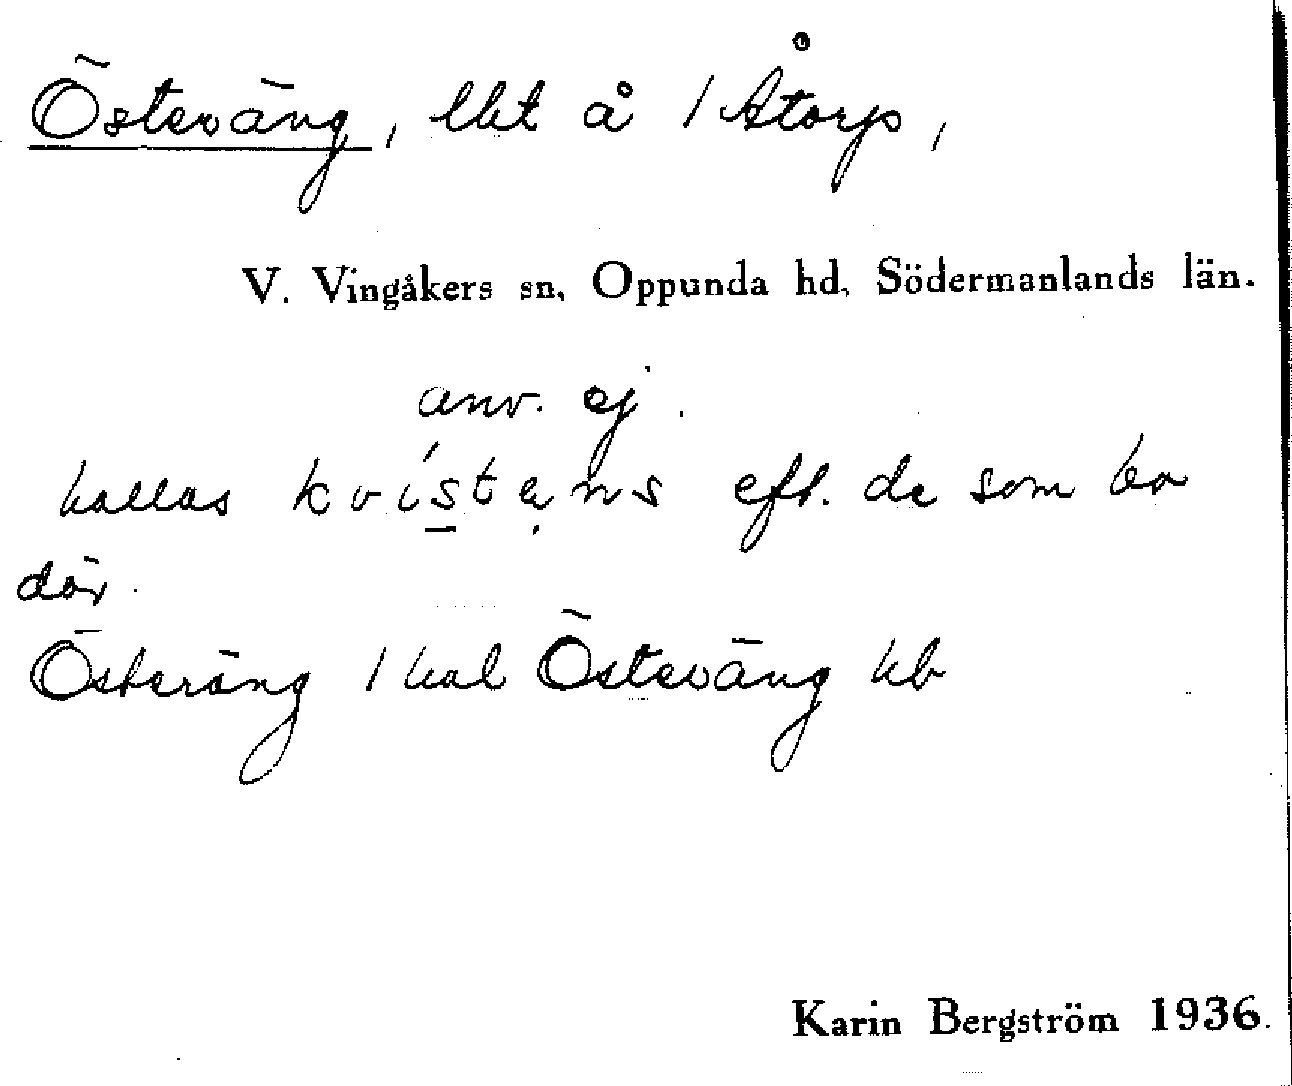 Österäng, lht å 1 Åtorp,
V. Vingåkers sn, Oppunda hd, Södermanlands län.
anv. ej.
kallas kvístẹns eft. de som bo
där.
Österäng 1 hal Österäng kb
Karin Bergström 1936.